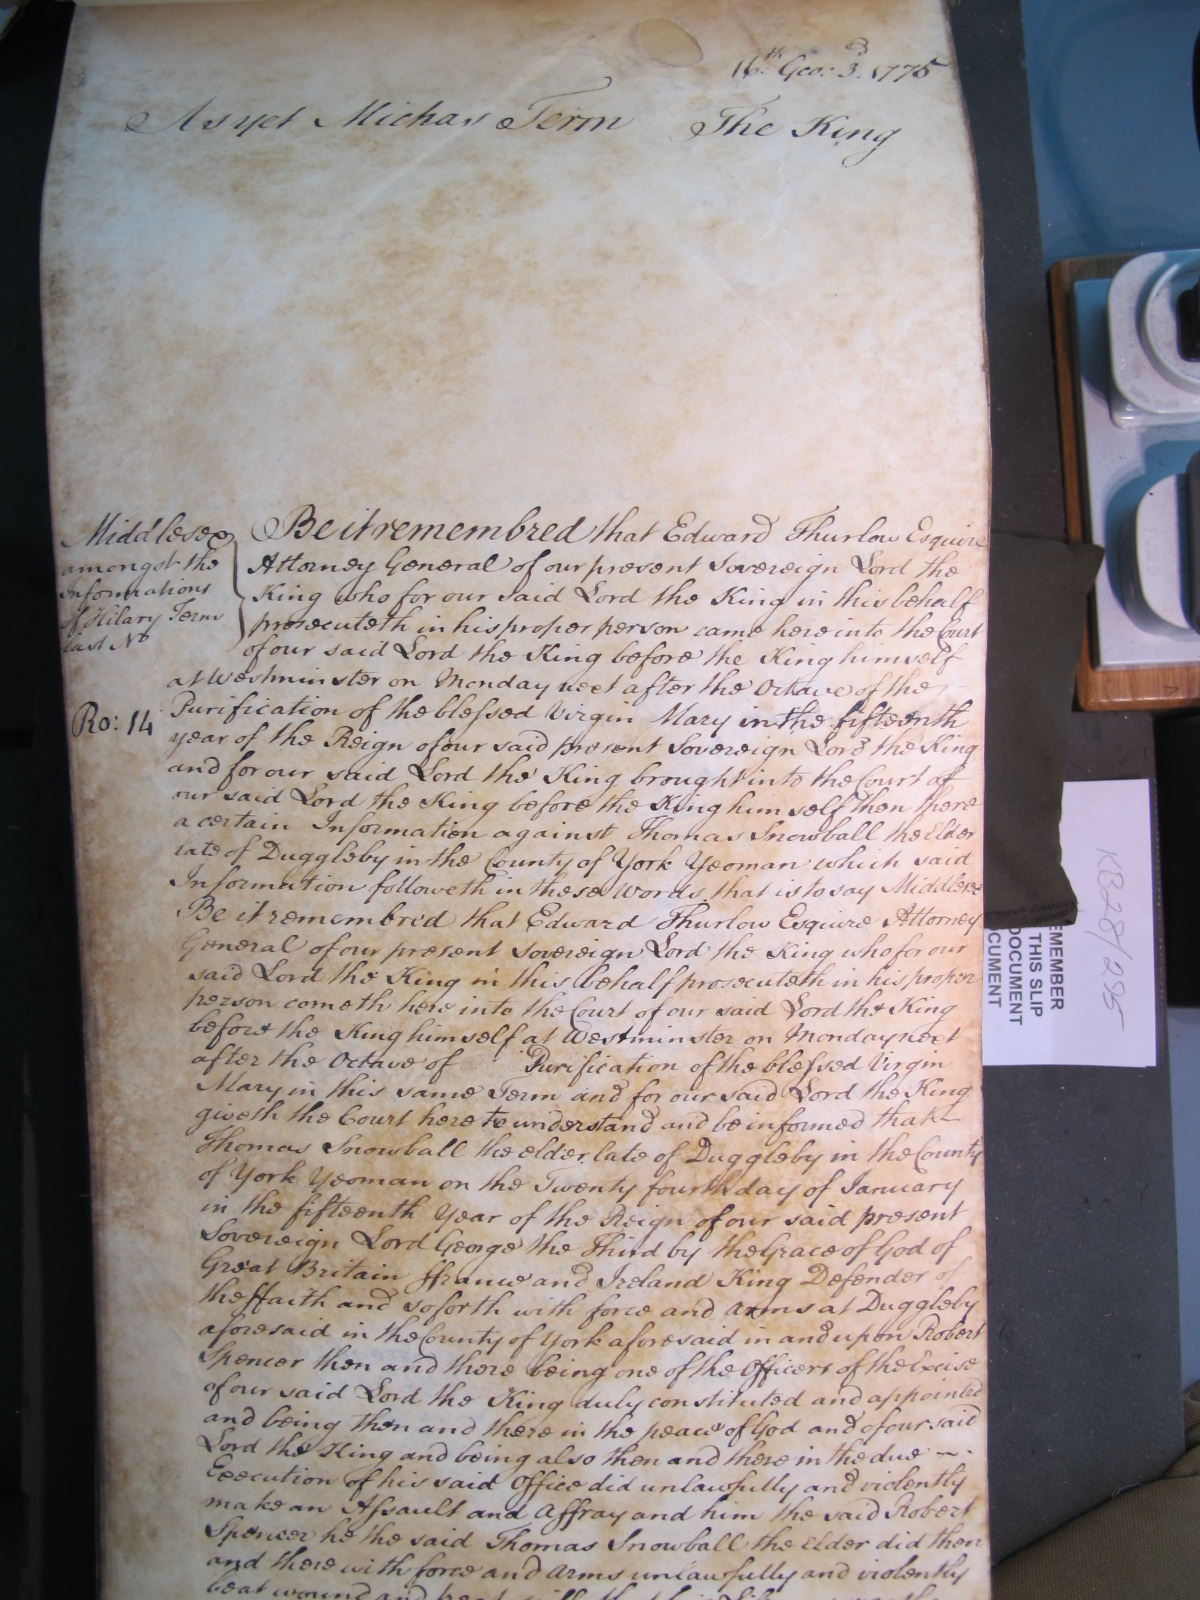 16th. Geo: 3d. 1775
As yet Michas Term The King
Middlesex
amongst the
Informations
of Hilary Term
last No
Ro: 14
Be it remembred that Edward Thurlow Esquire
Attorney General of our present Sovereign Lord the
King who for our said Lord the King in this behalf
prosecuteth in his proper person came here into the Court
of our said Lord the King before the King himself
at Westminster on Monday next after the Octave of the
Purification of the blessed Virgin Mary in the fifteenth
year of the Reign of our said present Sovereign Lord the King
and for our said Lord the King brought into the Court of
our said Lord the King before the King himself then there
a certain Information against Thomas Snowball the Elder
late of Duggleby in the County of York Yeoman which said
Information followeth in these words that is to say Middlesex
Be it remembred that Edward Thurlow Esquire Attorney
General of our present Sovereign Lord the King who for our
said Lord the King in this behalf prosecuteth in his proper
person cometh here into the Court of our said Lord the King
before the King himself at Westminster on Monday next
after the Octave of Purification of the blessed Virgin
Mary in this same Term and for our said Lord the King
giveth the Court here to understand and be informed that
Thomas Snowball the elder late of Duggleby in the County
of York Yeoman on the Twenty fourth day of January
in the fifteenth Year of the Reign of our said present
Sovereign Lord George the Third by the Grace of God of
Great Britain ffrance and Ireland King Defender of
the ffaith and soforth with force and arms at Duggleby
aforesaid in the County of York aforesaid in and upon Robert
Spencer then and there being one of the Officers of the Excise
of our said Lord the King duly constituted and appointed
and being then and there in the peace of God and of our said
Lord the King and being also then and there in the due
Execution of his said Office did unlawfully and violently
make an Assault and Affray and him the said Robert
Spencer he the said Thomas Snowball the Elder did then
and there with force and Arms unlawfully and violently
beat wound and
KB28/295
EMEMBER
THIS SLIP
DOCUMENT
CUMENT